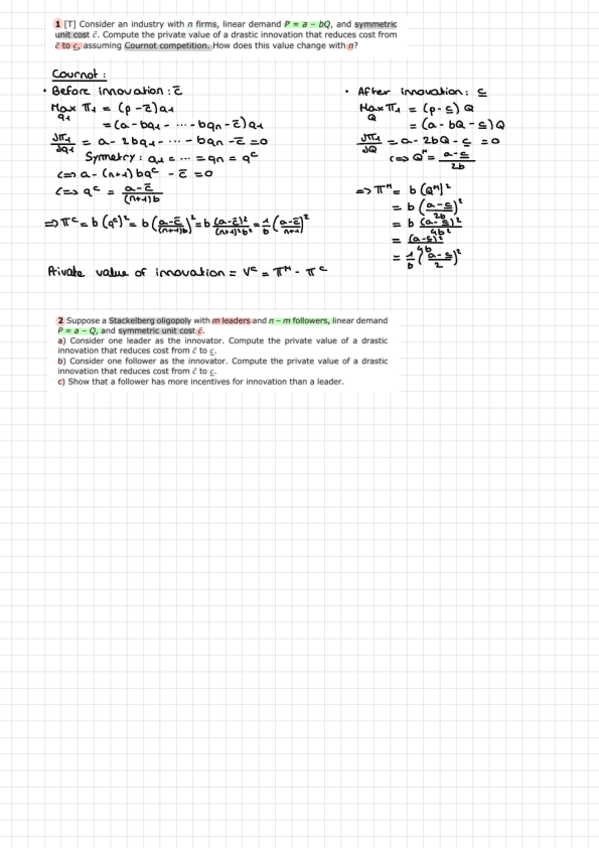 1 [T] Consider an industry with n firms, linear demand P = a – bQ, and symmetric
unit cost c̄. Compute the private value of a drastic innovation that reduces cost from
c̄ to c̲, assuming Cournot competition. How does this value change with n?
Cournot :
• Before innovation : c̄
Max π₁ = (p - c̄)q₁
q₁
= (a - bq₁ - ... - bqn - c̄)q₁
∂π₁/∂q₁ = a - 2bq₁ - ... - bqn - c̄ = 0
Symetry : q₁ = ... = qn = qᶜ
<=> a - (n+1)bqᶜ - c̄ = 0
<=> qᶜ = (a-c̄)/((n+1)b)
=> πᶜ = b(qᶜ)² = b((a-c̄)/((n+1)b))² = b (a-c̄)²/((n+1)²b²) = 1/b ((a-c̄)/(n+1))²
• After innovation : c̲
Max π₁ = (p - c̲) Q
Q
= (a - bQ - c̲)Q
∂π₁/∂Q = a - 2bQ - c̲ = 0
<=> Qᴹ = (a-c̲)/2b
=> πᴹ = b(Qᴹ)²
= b((a-c̲)/2b)²
= b (a-c̲)²/4b²
= (a-c̲)²/4b
= 1/b ((a-c̲)/2)²
Private value of innovation = Vᶜ = πᴹ - πᶜ
2 Suppose a Stackelberg oligopoly with m leaders and n – m followers, linear demand
P = a – Q, and symmetric unit cost c̄.
a) Consider one leader as the innovator. Compute the private value of a drastic
innovation that reduces cost from c̄ to c̲.
b) Consider one follower as the innovator. Compute the private value of a drastic
innovation that reduces cost from c̄ to c̲.
c) Show that a follower has more incentives for innovation than a leader.